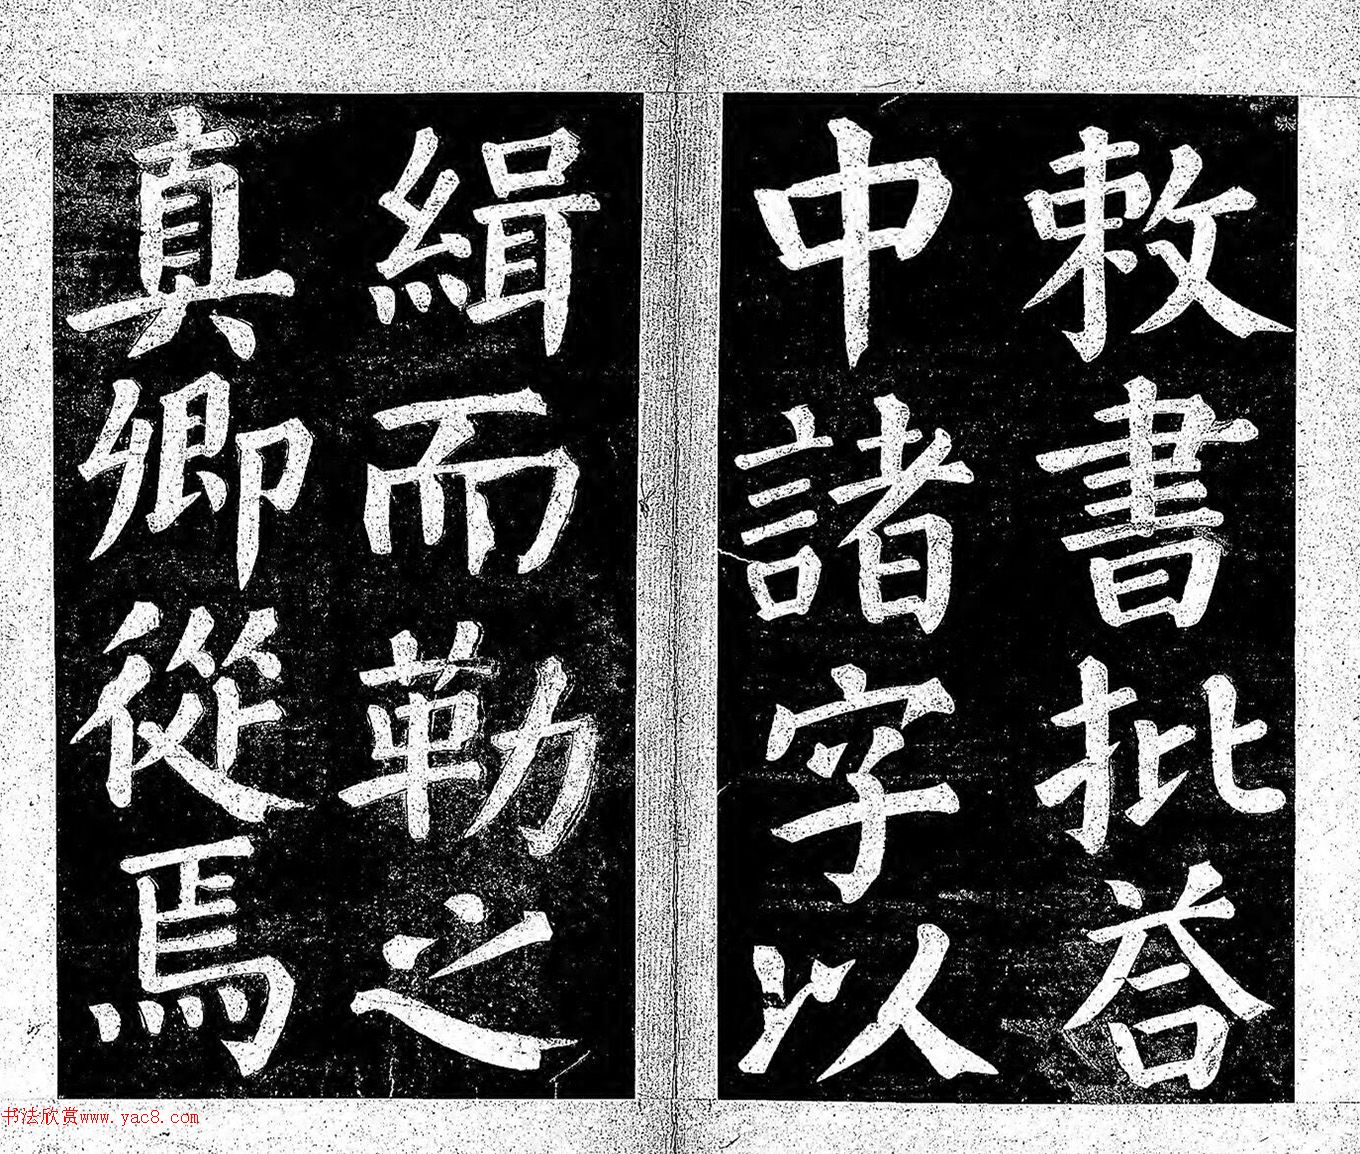 敕書批荅
中諸字以
緝而勒之
真卿從焉
书法欣赏www.yac8.com